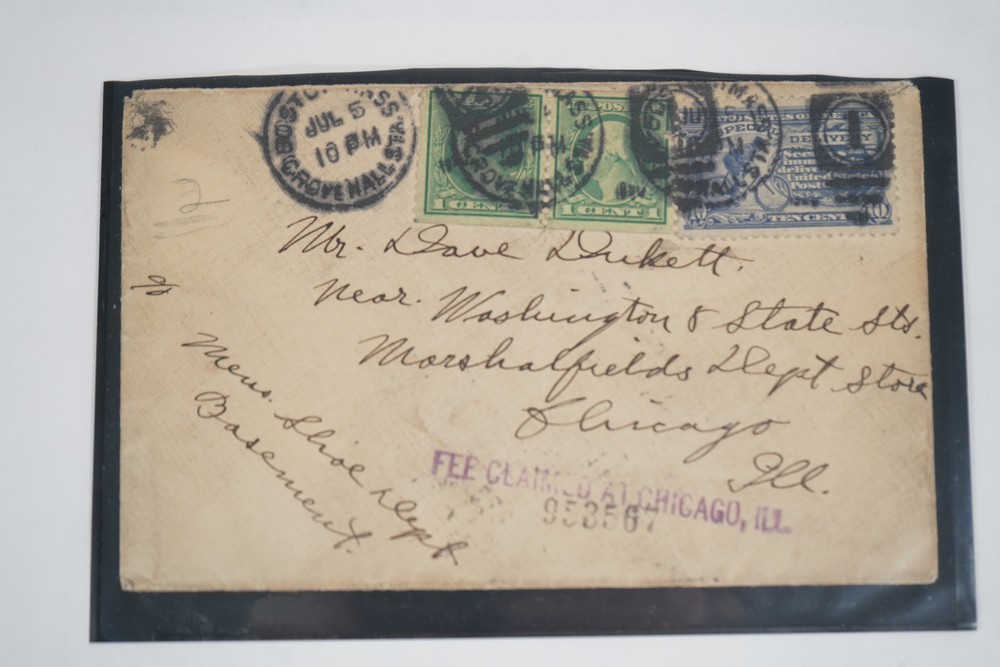 BOSTON, MASS.
JUL 5
10 PM
GROVE HALL STA.
1 CENT 1
1 CENT 1
SPECIAL DELIVERY
TEN CENTS 10
1
Mr. Dave Dukett.
Near. Washington & State Sts.
Marshalfields Dept Store
Chicago
Ill.
%
Mens. Shoe Dept
Basement.
FEE CLAIMED AT CHICAGO, ILL.
953567